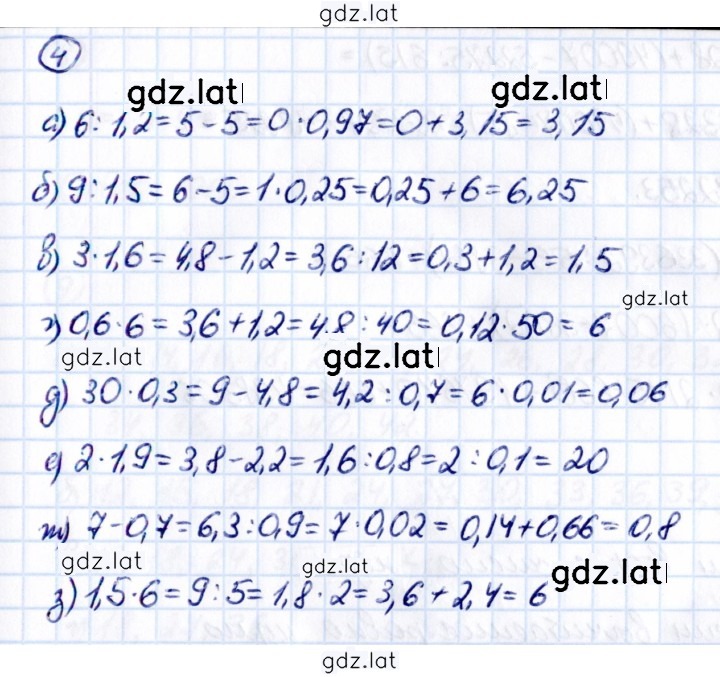 gdz.lat
4
gdz.lat gdz.lat
а) 6:1,2=5-5=0·0,97=0+3,15=3,15
б) 9:1,5=6-5=1·0,25=0,25+6=6,25
в) 3·1,6=4,8-1,2=3,6:12=0,3+1,2=1,5
gdz.lat
г) 0,6·6=3,6+1,2=4,8:40=0,12·50=6
gdz.lat gdz.lat
д) 30·0,3=9-4,8=4,2:0,7=6·0,01=0,06
е) 2·1,9=3,8-2,2=1,6:0,8=2:0,1=20
ж) 7-0,7=6,3:0,9=7·0,02=0,14+0,66=0,8
gdz.lat gdz.lat gdz.lat
з) 1,5·6=9:5=1,8·2=3,6+2,4=6
gdz.lat